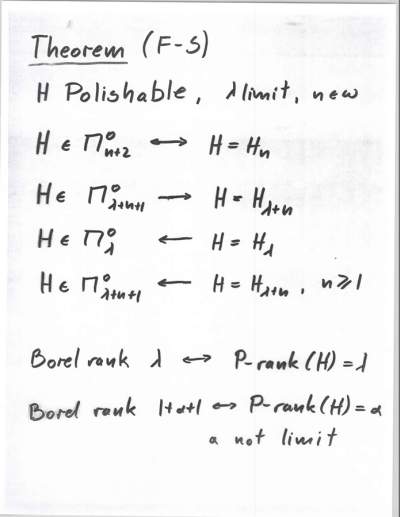 Theorem (F-S)
H Polishable, λ limit, n ∈ ω
H ∈ Π⁰ₙ₊₂ ⟷ H = Hₙ
H ∈ Π⁰_{λ+n+1} → H = H_{λ+n}
H ∈ Π⁰_λ ← H = H_λ
H ∈ Π⁰_{λ+n+1} ← H = H_{λ+n}, n ⩾ 1
Borel rank λ ↔ P-rank(H) = λ
Borel rank 1+α+1 ↔ P-rank(H) = α
α not limit